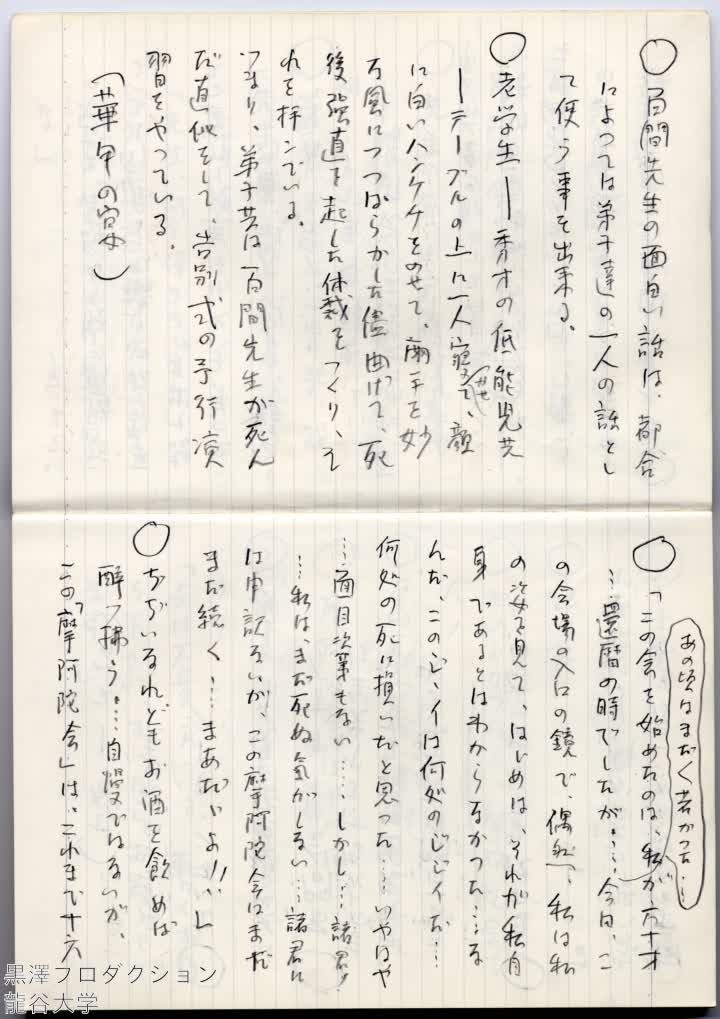 ○ 百間先生の面白い話は、都合
によっては弟子達の一人の話とし
て使う事も出来る。
○ 老学生―秀才の低能児共
―テーブルの上に一人寝かせて、顔
に白いハンケチをのせて、両手を妙
な風につっぱらかした儘曲げて、死
後強直を起した体裁をつくり、そ
れを拝んでいる。
つまり、弟子共は百間先生が死ん
だ真似をして、告別式の予行演
習をやっている。
(華甲の宴)
あの頃はまだ〱若かった…
○ 「この会を始めたのは、私が六十才
…還暦の時でしたが…‥今日、こ
の会場の入口の鏡で、偶然、私は私
の姿を見て、はじめは、それが私自
身であるとはわからなかった…‥な
んだ、このジヾイは何処のジヾイだ…
何処の死に損いだと思った…‥いやはや
…面目次第もない…‥しかし…諸君!
…私は、まだ死ぬ気がしない…諸君に
は申訳ないが、この摩阿陀会はまだ
まだ続く…まあだだよ!!」
○ ぢぢいなれどもお酒を飲めば
酔っ拂う…‥自慢ではないが、
この「摩阿陀会」は、これまで十六
黒澤プロダクション
龍谷大学